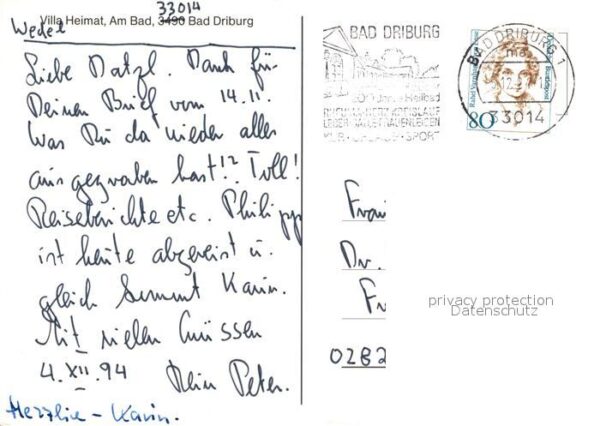 33014
Villa Heimat, Am Bad, 3490 Bad Driburg
Wedel
Liebe Datzl. Dank für
Deinen Brief vom 14.11.
Was Du da wieder alles
ausgegraben hast!? Toll!
Reiseberichte etc. Philipp
ist heute abgereist u.
gleich kommt Karin.
Mit vielen Grüssen
4.XII.94 Dein Peter.
Herzlich - Karin.
BAD DRIBURG
LEBER GALLE FRAUENLEIDEN
KUR · URLAUB · SPORT
BAD DRIBURG 1
33014
80
Frau
Dr.
Fr
0282
privacy protection
Datenschutz